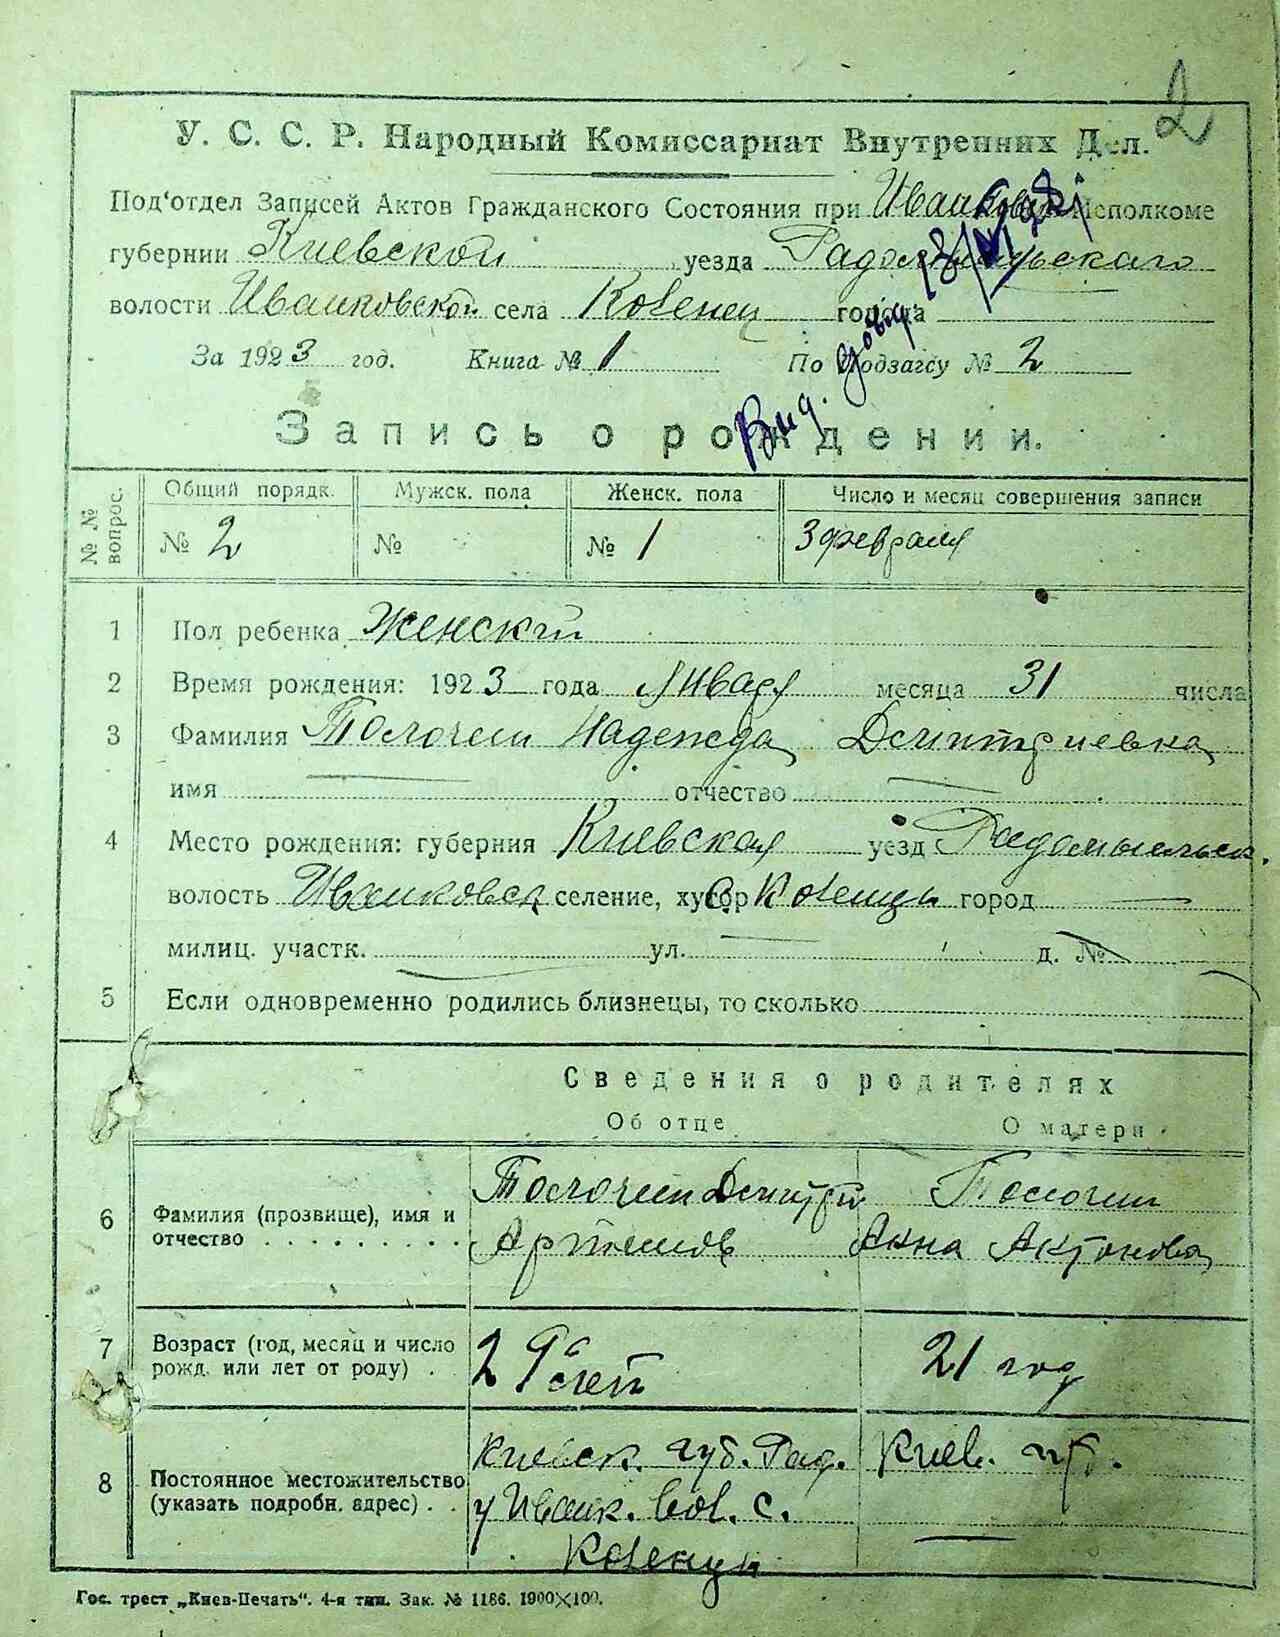 2
У. С. С. Р. Народный Комиссариат Внутренних Дел.
Под'отдел Записей Актов Гражданского Состояния при Иванковск Исполкоме
губернии Киевской уезда Радомысльскаго
волости Иванковской села города
За 1923 год. Книга № 1 По Подзагсу № 2
Вид. довід. 18/VI
Запись о рождении.
№ № вопрос. Общий порядк. Мужск. пола Женск. пола Число и месяц совершения записи
№ 2 № № 1 3 февраля
1 Пол ребенка Женский
2 Время рождения: 1923 года Января месяца 31 числа
3 Фамилия Толочин Надежда Дмитриевна
имя отчество
4 Место рождения: губерния Киевская уезд Радомысльск.
волость Иванковск селение, хутор с. город
милиц. участк. ул. д. №
5 Если одновременно родились близнецы, то сколько
Сведения о родителях
Об отце О матери
6 Фамилия (прозвище), имя и отчество Толочин Дмитри Артемов Толочин Анна Антонова
7 Возраст (год, месяц и число рожд. или лет от роду) 29 лет 21 год
8 Постоянное местожительство (указать подробн. адрес) Киевск. губ. Рад. Киев. губ.
у Иванк. вол. с.
Гос. трест „Киев-Печать“. 4-я тип. Зак. № 1186. 1900×100.